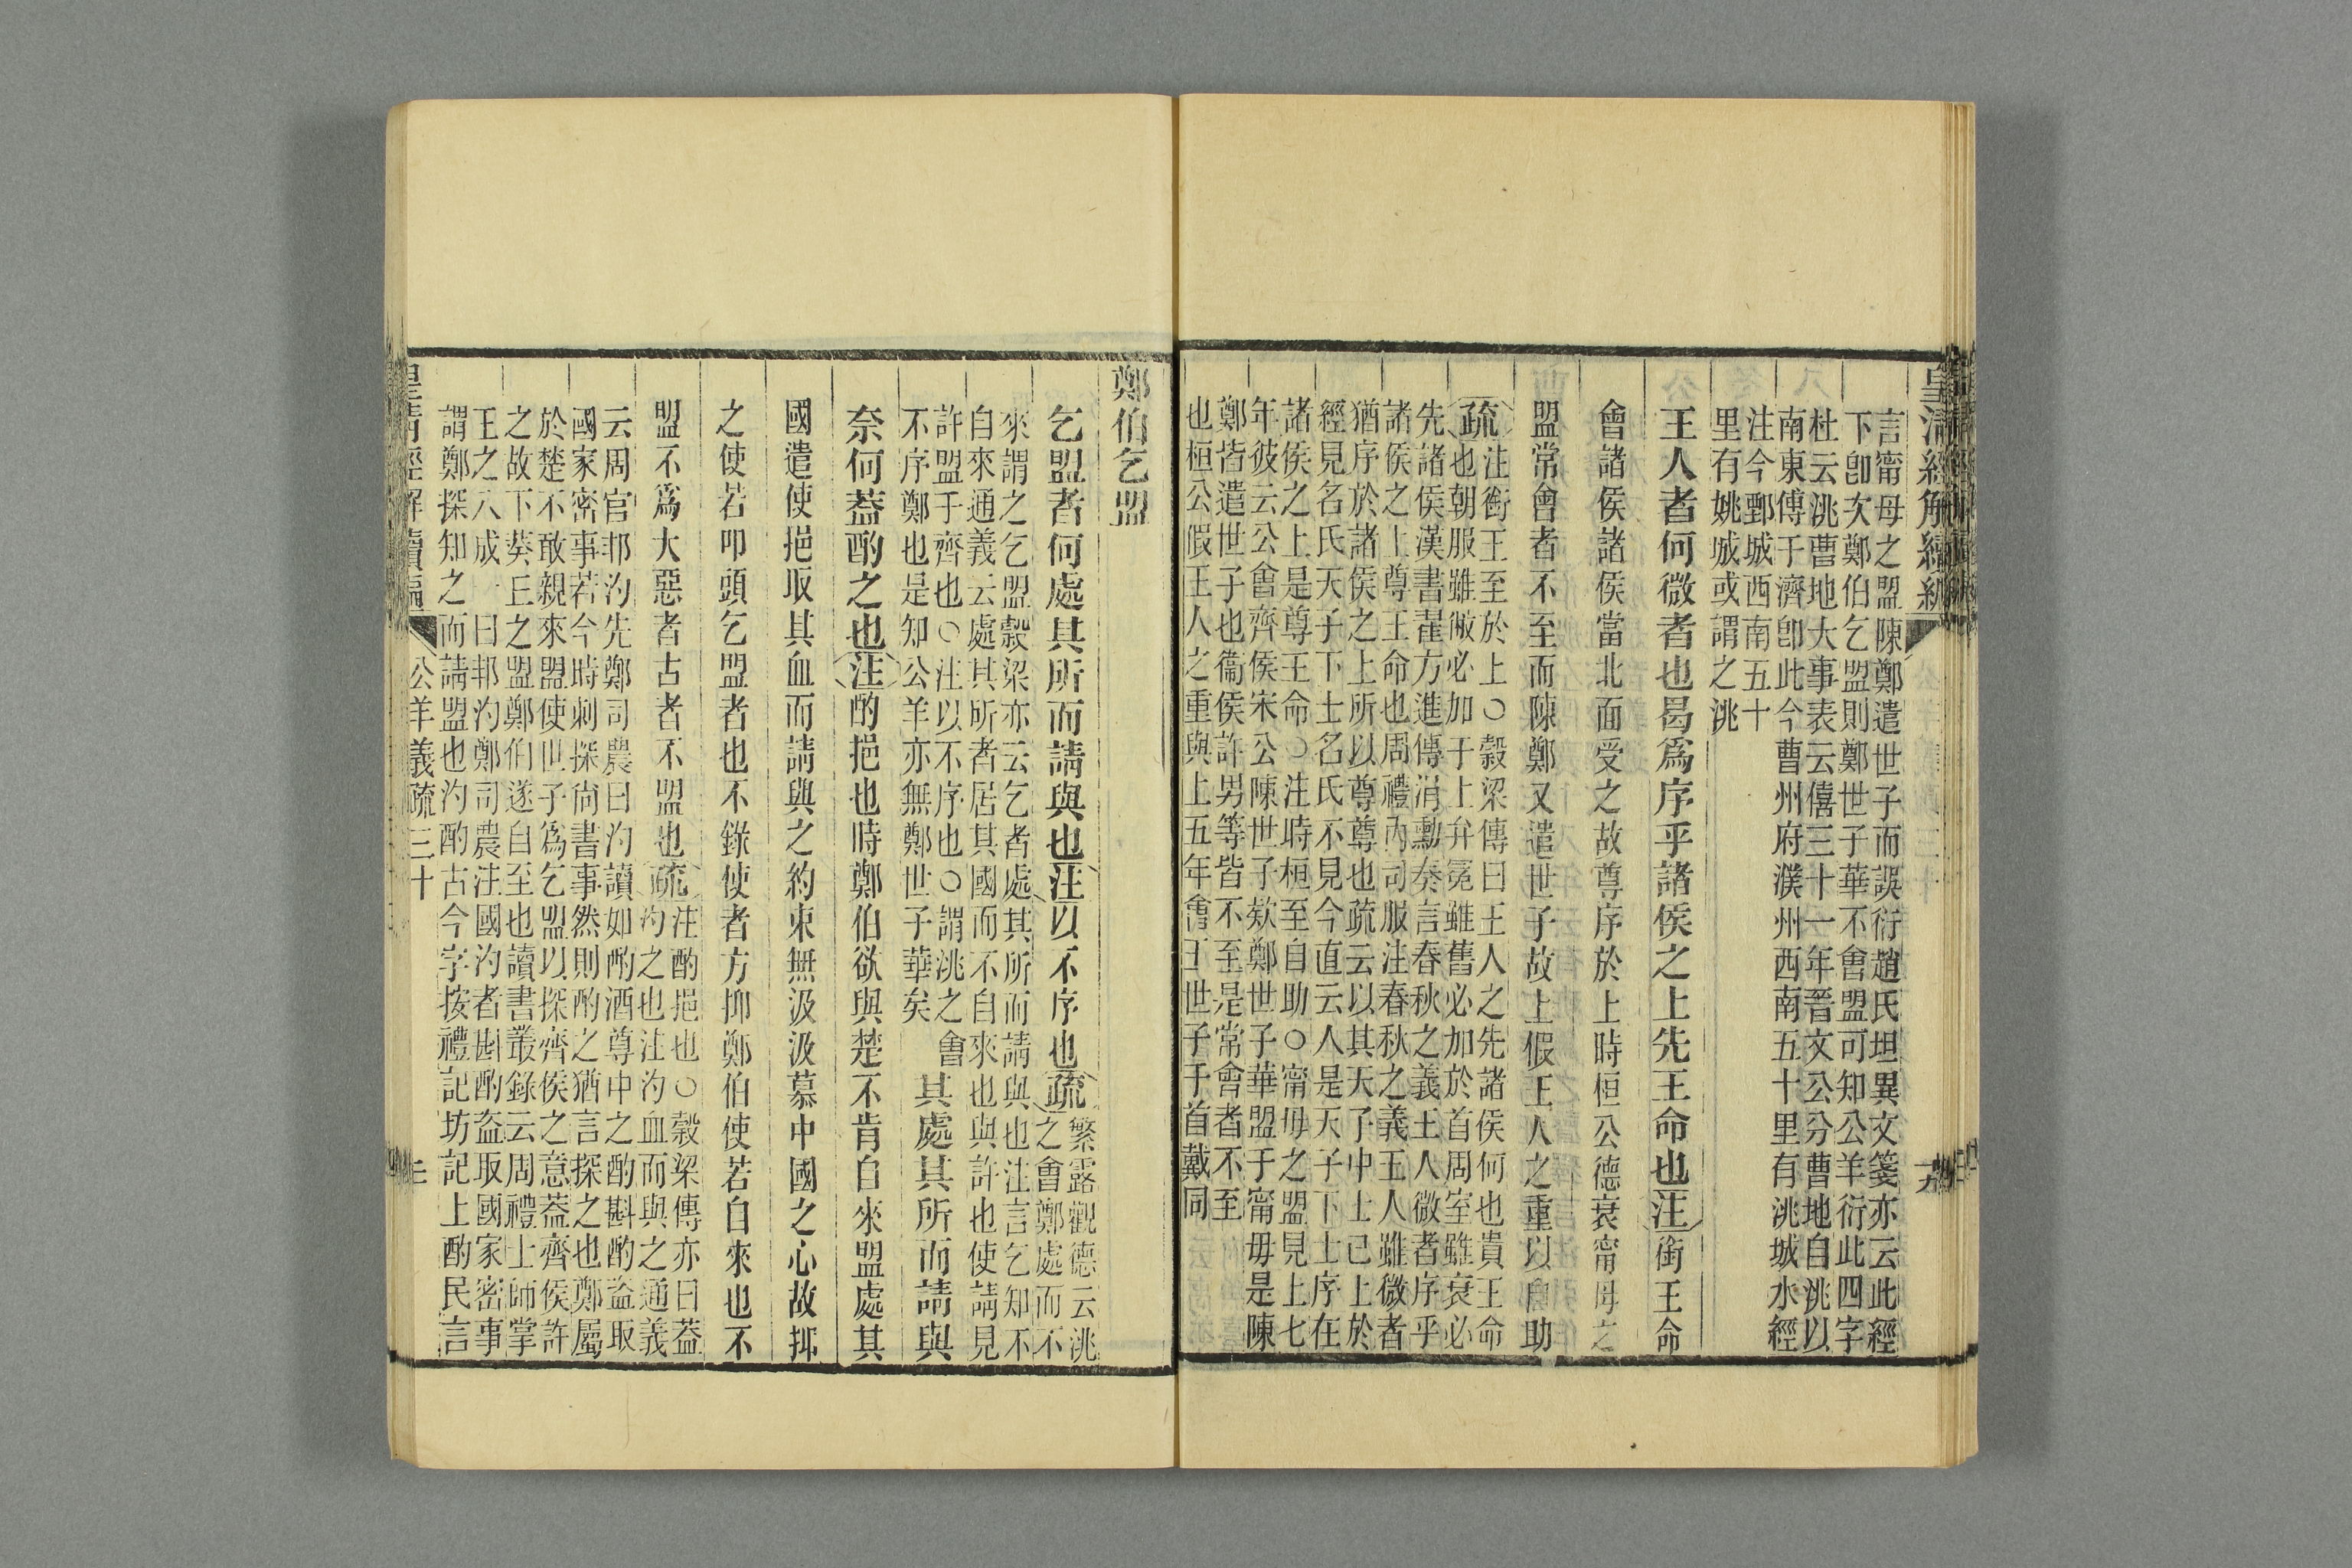 皇清經解續編
言甯母之盟陳鄭遣世子而誤衍趙氏坦異文箋亦云此經
下卽次鄭伯乞盟則鄭世子華不會盟可知公羊衍此四字
杜云洮曹地大事表云僖三十一年晉文公分曹地自洮以
南東傅于濟卽此今曹州府濮州西南五十里有洮城水經
注今鄄城西南五十
里有姚城或謂之洮
王人者何微者也曷爲序乎諸侯之上先王命也注銜王命
會諸侯諸侯當北面受之故尊序於上時桓公德衰甯母之
盟常會者不至而陳鄭又遣世子故上假王人之重以自助
疏注銜王至於上○穀梁傳曰王人之先諸侯何也貴王命
也朝服雖敝必加于上弁冕雖舊必加於首周室雖衰必
先諸侯漢書翟方進傳涓勳奏言春秋之義王人微者序乎
諸侯之上尊王命也周禮內司服注春秋之義王人雖微者
猶序於諸侯之上所以尊尊也疏云以其天子中士已上於
經見名氏天子下士名氏不見今直云人是天子下士序在
諸侯之上是尊王命○注時桓至自助○甯毋之盟見上七
年彼云公會齊侯宋公陳世子欵鄭世子華盟于甯毋是陳
鄭皆遣世子也衞侯許男等皆不至是常會者不至
也桓公假王人之重與上五年會王世子于首戴同
鄭伯乞盟
乞盟者何處其所而請與也注以不序也疏繁露觀德云洮
之會鄭處而不
來謂之乞盟穀梁亦云乞者處其所而請與也注言乞知不
自來通義云處其所者居其國而不自來也與許也使請見
許盟于齊也○注以不序也○謂洮之會
不序鄭也是知公羊亦無鄭世子華矣
其處其所而請與
奈何蓋酌之也注酌挹也時鄭伯欲與楚不肯自來盟處其
國遣使挹取其血而請與之約束無汲汲慕中國之心故抑
之使若叩頭乞盟者也不錄使者方抑鄭伯使若自來也不
盟不爲大惡者古者不盟也疏注酌挹也○穀梁傳亦曰蓋
汋之也注汋血而與之通義
云周官邦汋先鄭司農曰汋讀如酌酒尊中之酌斟酌盜取
國家密事若今時刺探尙書事然則酌之猶言探之也鄭屬
於楚不敢親來盟使世子爲乞盟以探齊侯之意蓋齊侯許
之故下葵丘之盟鄭伯遂自至也讀書叢錄云周禮士師掌
王之八成一曰邦汋鄭司農注國汋者斟酌盜取國家密事
謂鄭探知之而請盟也汋酌古今字按禮記坊記上酌民言
皇清經解續編
公羊義疏三十